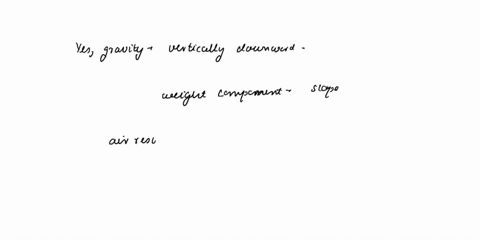 Yes, gravity → vertically downward.
weight component → slope
air resi